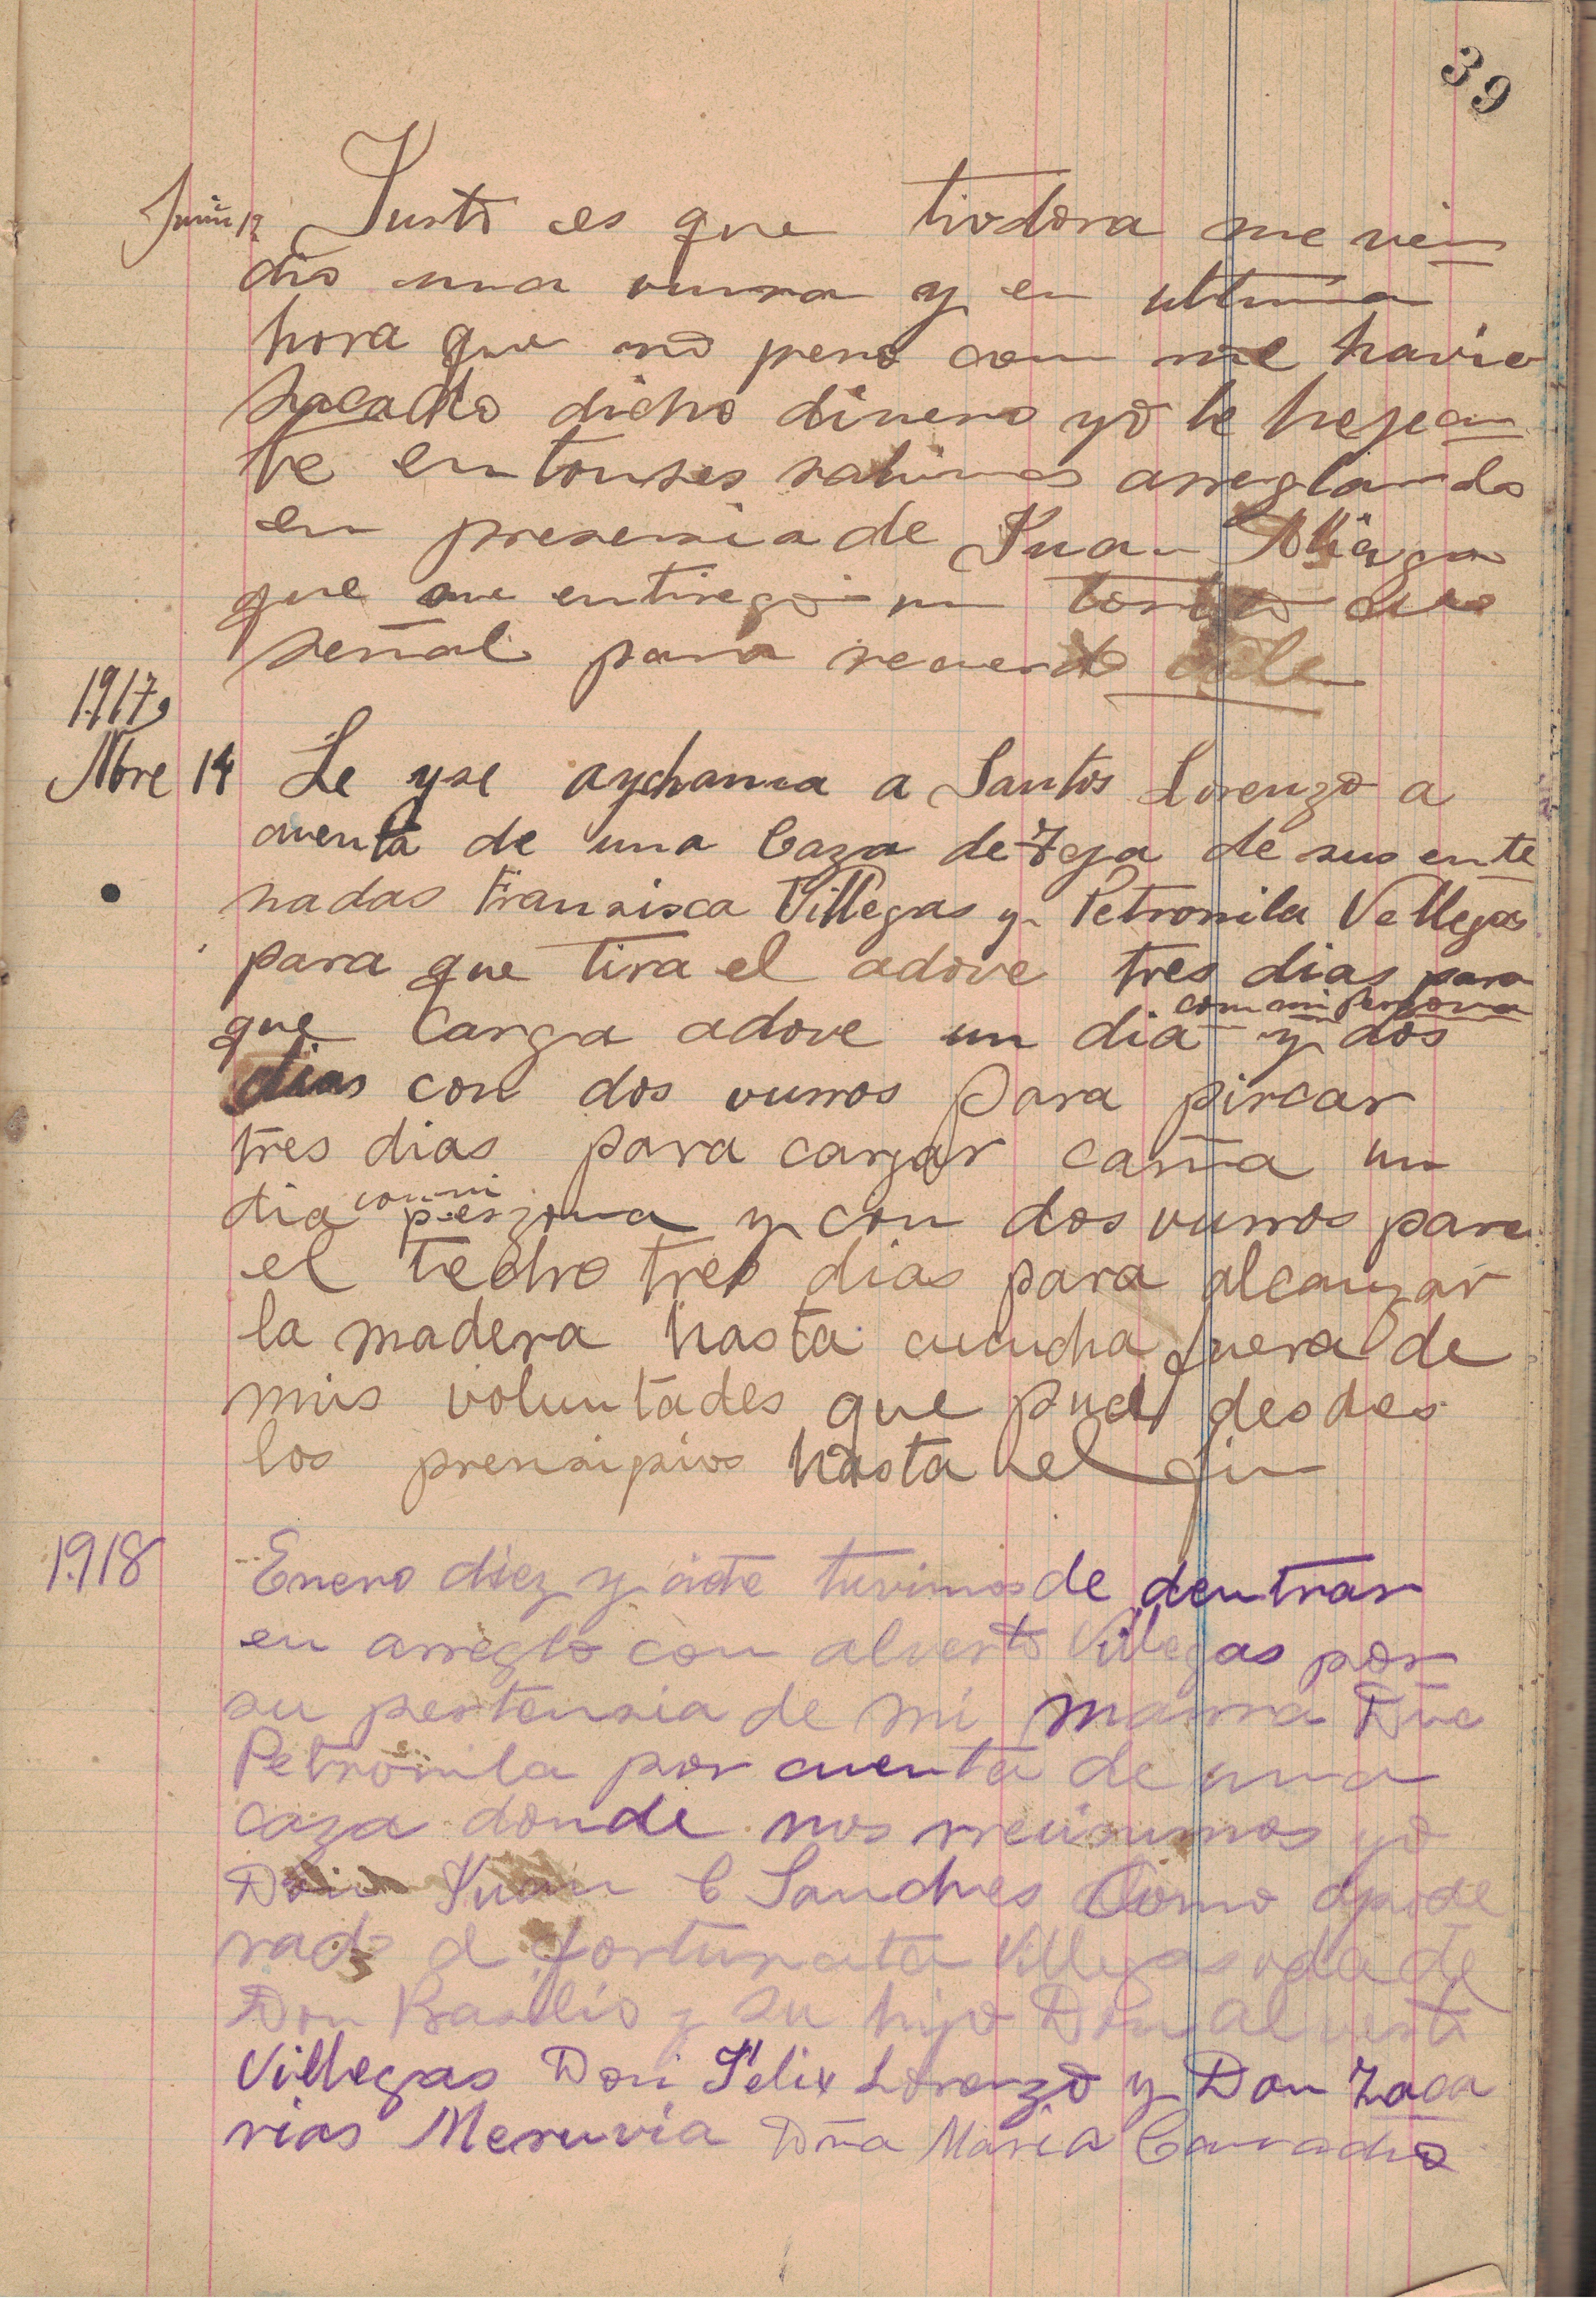 39
Junio 12 Justo es que tiodora me ven
dio una vurra y en ultima
hora que no pero com me havia
sacado dicho dinero yo le hejecu
te entonses salimos arreglando
en presensia de Juan Aliaga
que me entrego un torito sin
señal para recuerdo vale
1917
Nbre 14 Le yse aychama a Santos Lorenzo a
cuenta de una Caza de Teja de sus ente
nadas Fransisca Villegas y Petronila Vellegas
para que tira el adove tres dias para
que Carga adove un dia con mi persona y dos
dias con dos vurros para pircar
tres dias para cargar caña un
dia con mi perzona y con dos vurros para
el techo tres dias para alcanzar
la madera hasta cucucha fuera de
mis voluntades que pude desdes
los prensipios hasta el fin
1918 Enero diez y siete tuvimos de dentrar
en arreglo con alverto Villegas por
su pertensia de mi mama Dña
Petronila por cuenta de una
caza donde nos rreunimos yo
Don Juan C Sanches Como apode
rado d fortunata Villegas vda de
Don Basilio y su hijo Don alverto
Villegas Don Felix Lorenzo y Don Zaca
rias Meruvia Dña Maria Camacho